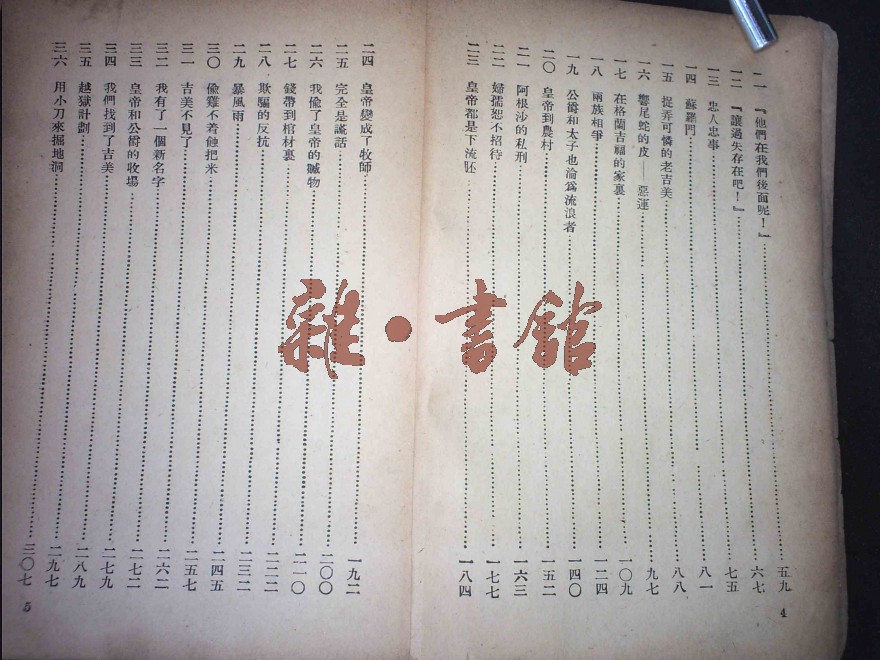 一一 『他們在我們後面呢！』 五九
一二 『讓過失存在吧！』 六七
一三 忠人忠事 七五
一四 蘇羅門 八一
一五 捉弄可憐的老吉美 八八
一六 響尾蛇的皮——惡運 九七
一七 在格蘭吉福的家裏 一〇九
一八 兩族相爭 一二四
一九 公爵和太子也淪爲流浪者 一四〇
二〇 皇帝到農村 一五二
二一 阿根沙的私刑 一六三
二二 婦孺恕不招待 一七七
二三 皇帝都是下流胚 一八四
4
二四 皇帝變成了牧師 一九二
二五 完全是謊話 二〇〇
二六 我偷了皇帝的贓物 二一〇
二七 錢帶到棺材裏 二二二
二八 欺騙的反抗 二三二
二九 暴風雨 二四五
三〇 偷雞不着蝕把米 二五七
三一 吉美不見了 二六二
三二 我有了一個新名字 二七二
三三 皇帝和公爵的收場 二七九
三四 我們找到了吉美 二八九
三五 越獄計劃 二九七
三六 用小刀來掘地洞 三〇七
5
雜·書館